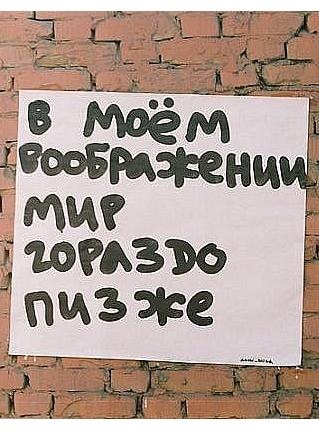 В МОЁМ
ВООБРАЖЕНИИ
МИР
ГОРАЗДО
ПИЗЖЕ